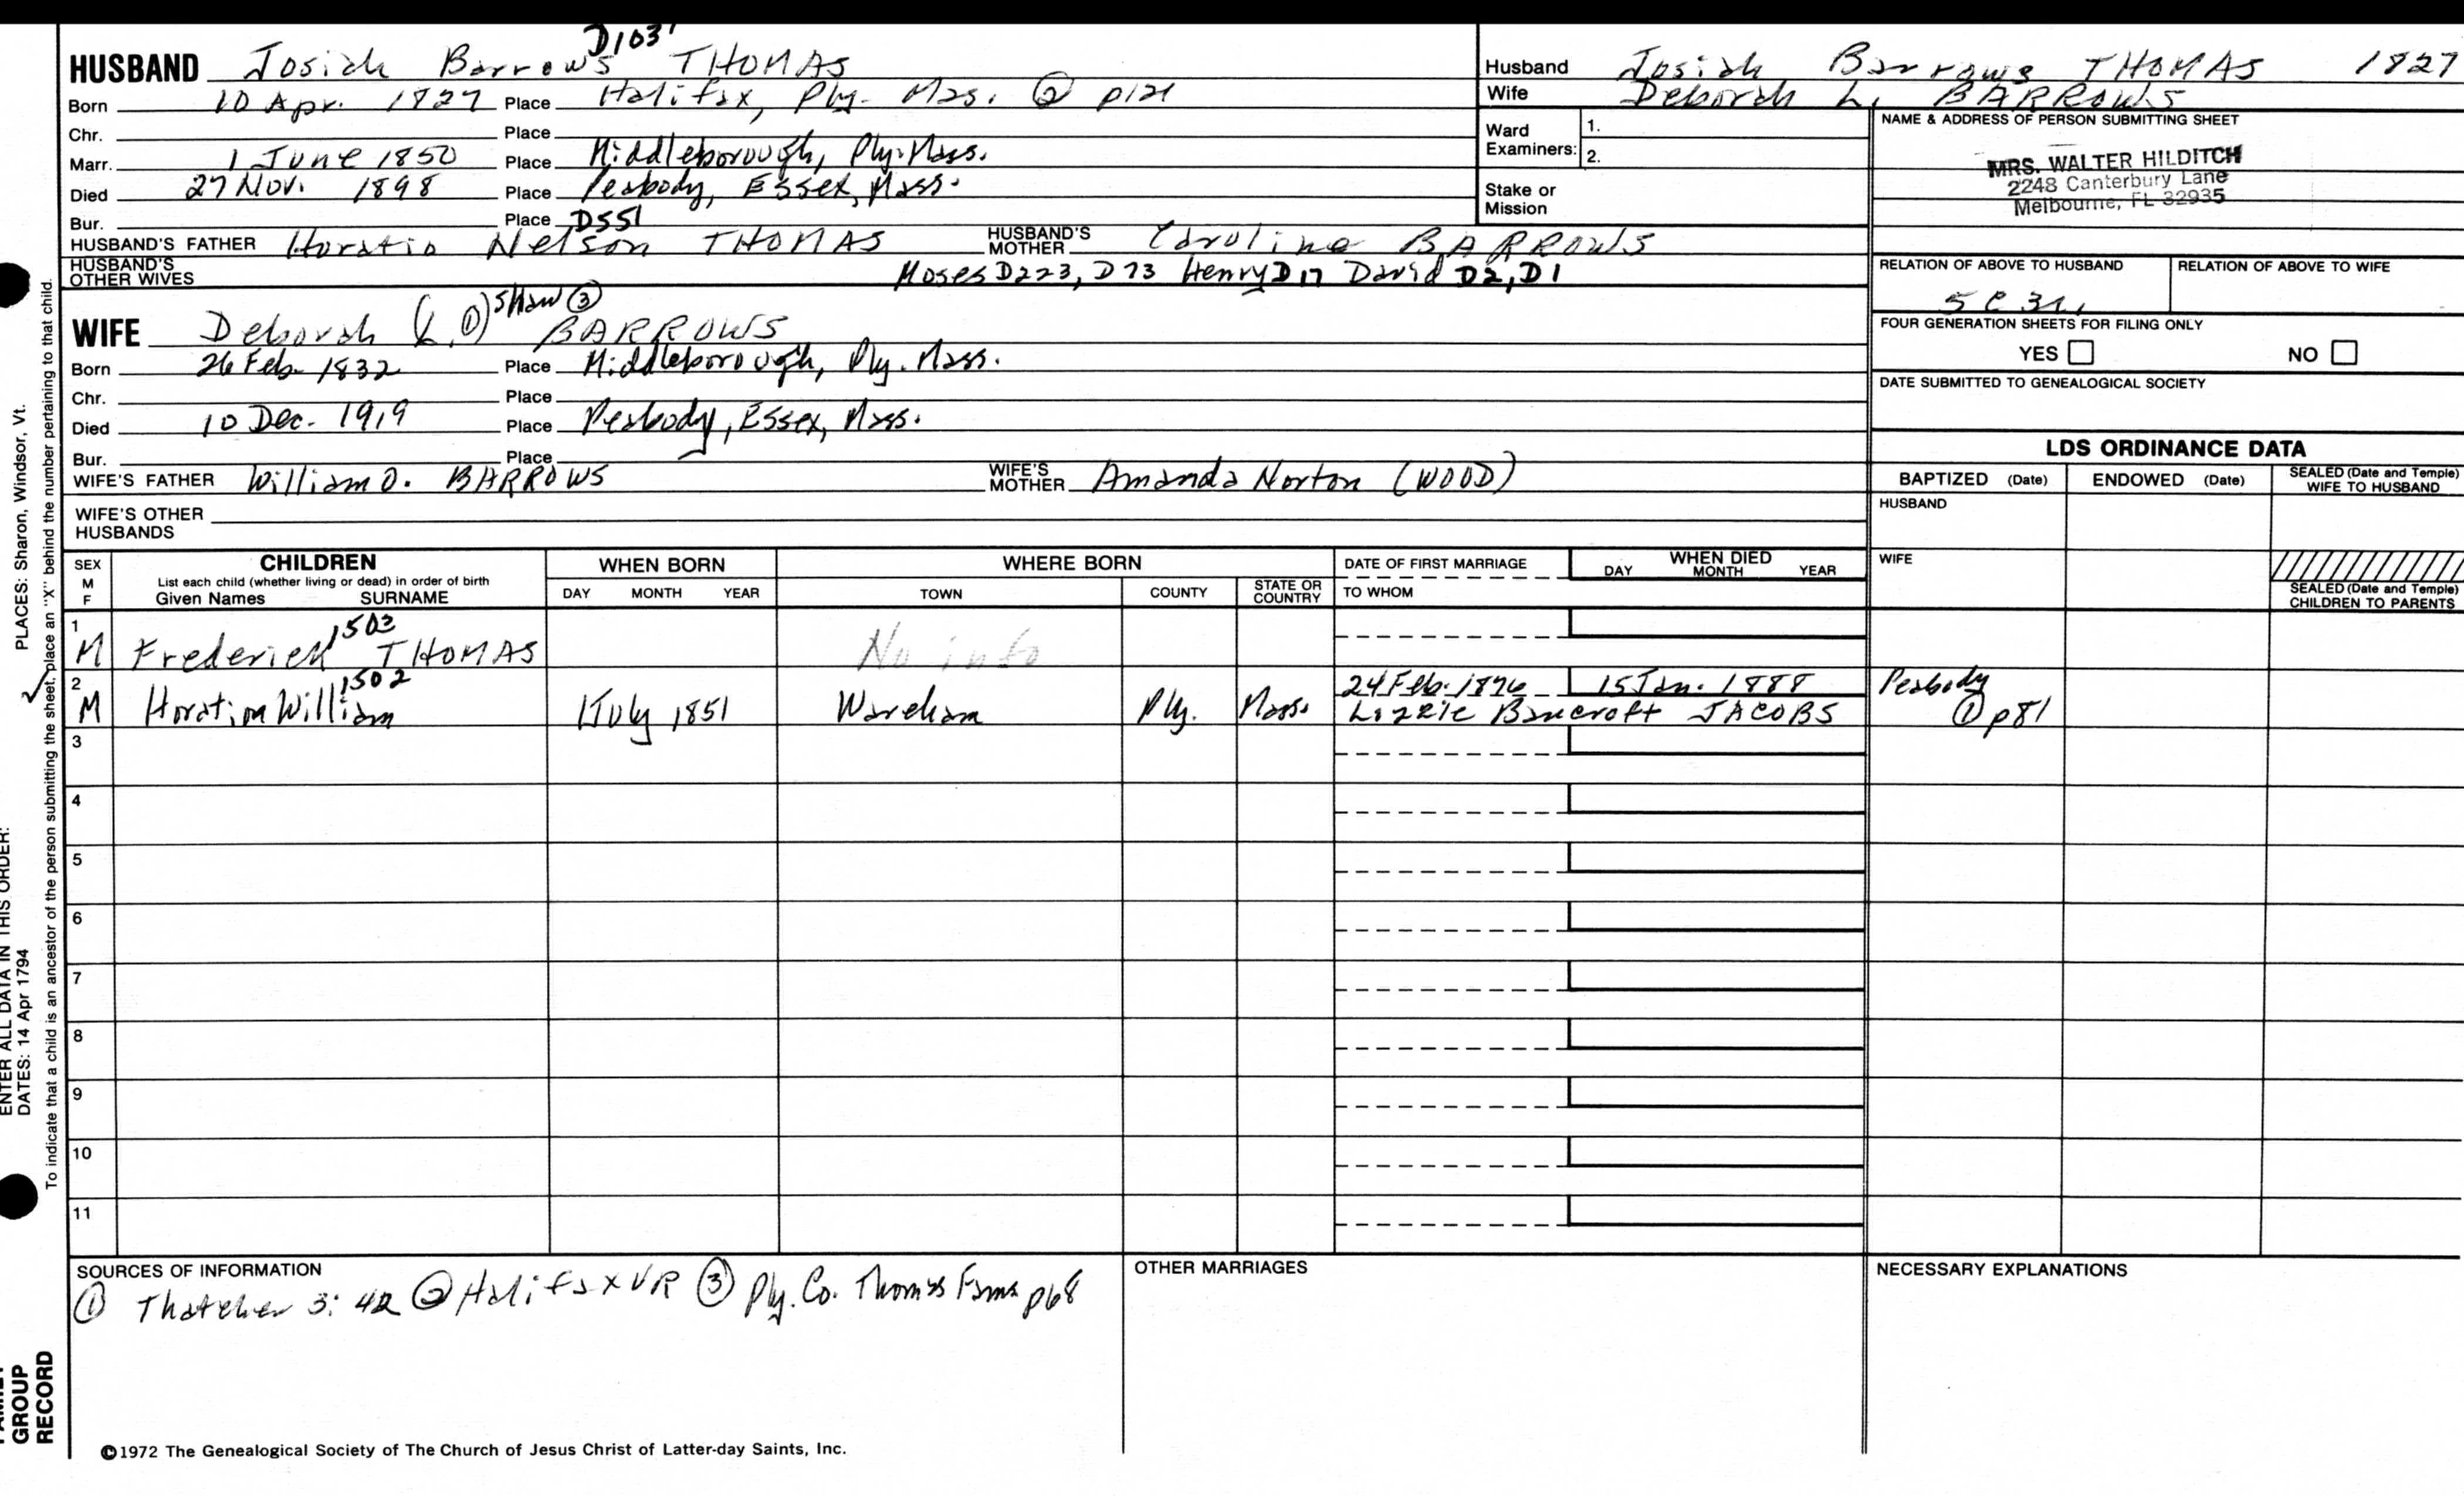 D1031
HUSBAND Josiah Barrows THOMAS
Born 10 Apr. 1827 Place Halifax, Ply. Mas. ②
Chr. Place
Marr. 1 June 1850 Place Middleborough, Ply. Mass.
Died 27 Nov. 1898 Place Peabody, Essex, Mass.
Bur. Place D551
HUSBAND'S FATHER Horatio Nelson THOMAS HUSBAND'S MOTHER Caroline BARROWS
HUSBAND'S OTHER WIVES
Moses D223, D73 Henry D17 David D2, D1
Shaw ③
WIFE Deborah (L.①) BARROWS
Born 26 Feb. 1832 Place Middleborough, Ply. Mass.
Chr. Place
Died 10 Dec. 1919 Place Peabody, Essex, Mass.
Bur. Place
WIFE'S FATHER William O. BARROWS WIFE'S MOTHER Amanda Norton (WOOD)
WIFE'S OTHER HUSBANDS
Husband Josiah Barrows THOMAS 1827
Wife Deborah L. BARROWS
Ward Examiners: 1.
2.
Stake or Mission
NAME & ADDRESS OF PERSON SUBMITTING SHEET
MRS. WALTER HILDITCH
2248 Canterbury Lane
Melbourne, FL 32935
RELATION OF ABOVE TO HUSBAND RELATION OF ABOVE TO WIFE
FOUR GENERATION SHEETS FOR FILING ONLY
YES NO
DATE SUBMITTED TO GENEALOGICAL SOCIETY
LDS ORDINANCE DATA
BAPTIZED (Date) ENDOWED (Date) SEALED (Date and Temple) WIFE TO HUSBAND
HUSBAND
WIFE
SEALED (Date and Temple) CHILDREN TO PARENTS
SEX M F CHILDREN WHEN BORN WHERE BORN DATE OF FIRST MARRIAGE WHEN DIED
List each child (whether living or dead) in order of birth
Given Names SURNAME DAY MONTH YEAR TOWN COUNTY STATE OR COUNTRY TO WHOM DAY MONTH YEAR
1503
1 M Frederick THOMAS No info
1502
2 M Horation William 1 July 1851 Wareham Ply. Mass. 24 Feb. 1876 15 Jan. 1888 Peabody
Lizzie Bancroft JACOBS ① p81
3
4
5
6
7
8
9
10
11
SOURCES OF INFORMATION
① Thatcher 3: 42 ② Halifax VR ③ Ply. Co. Thomas Fams p68
OTHER MARRIAGES
NECESSARY EXPLANATIONS
©1972 The Genealogical Society of The Church of Jesus Christ of Latter-day Saints, Inc.
ENTER ALL DATA IN THIS ORDER:
DATES: 14 Apr 1794 PLACES: Sharon, Windsor, Vt.
To indicate that a child is an ancestor of the person submitting the sheet, place an "X" behind the number pertaining to that child.
GROUP
RECORD